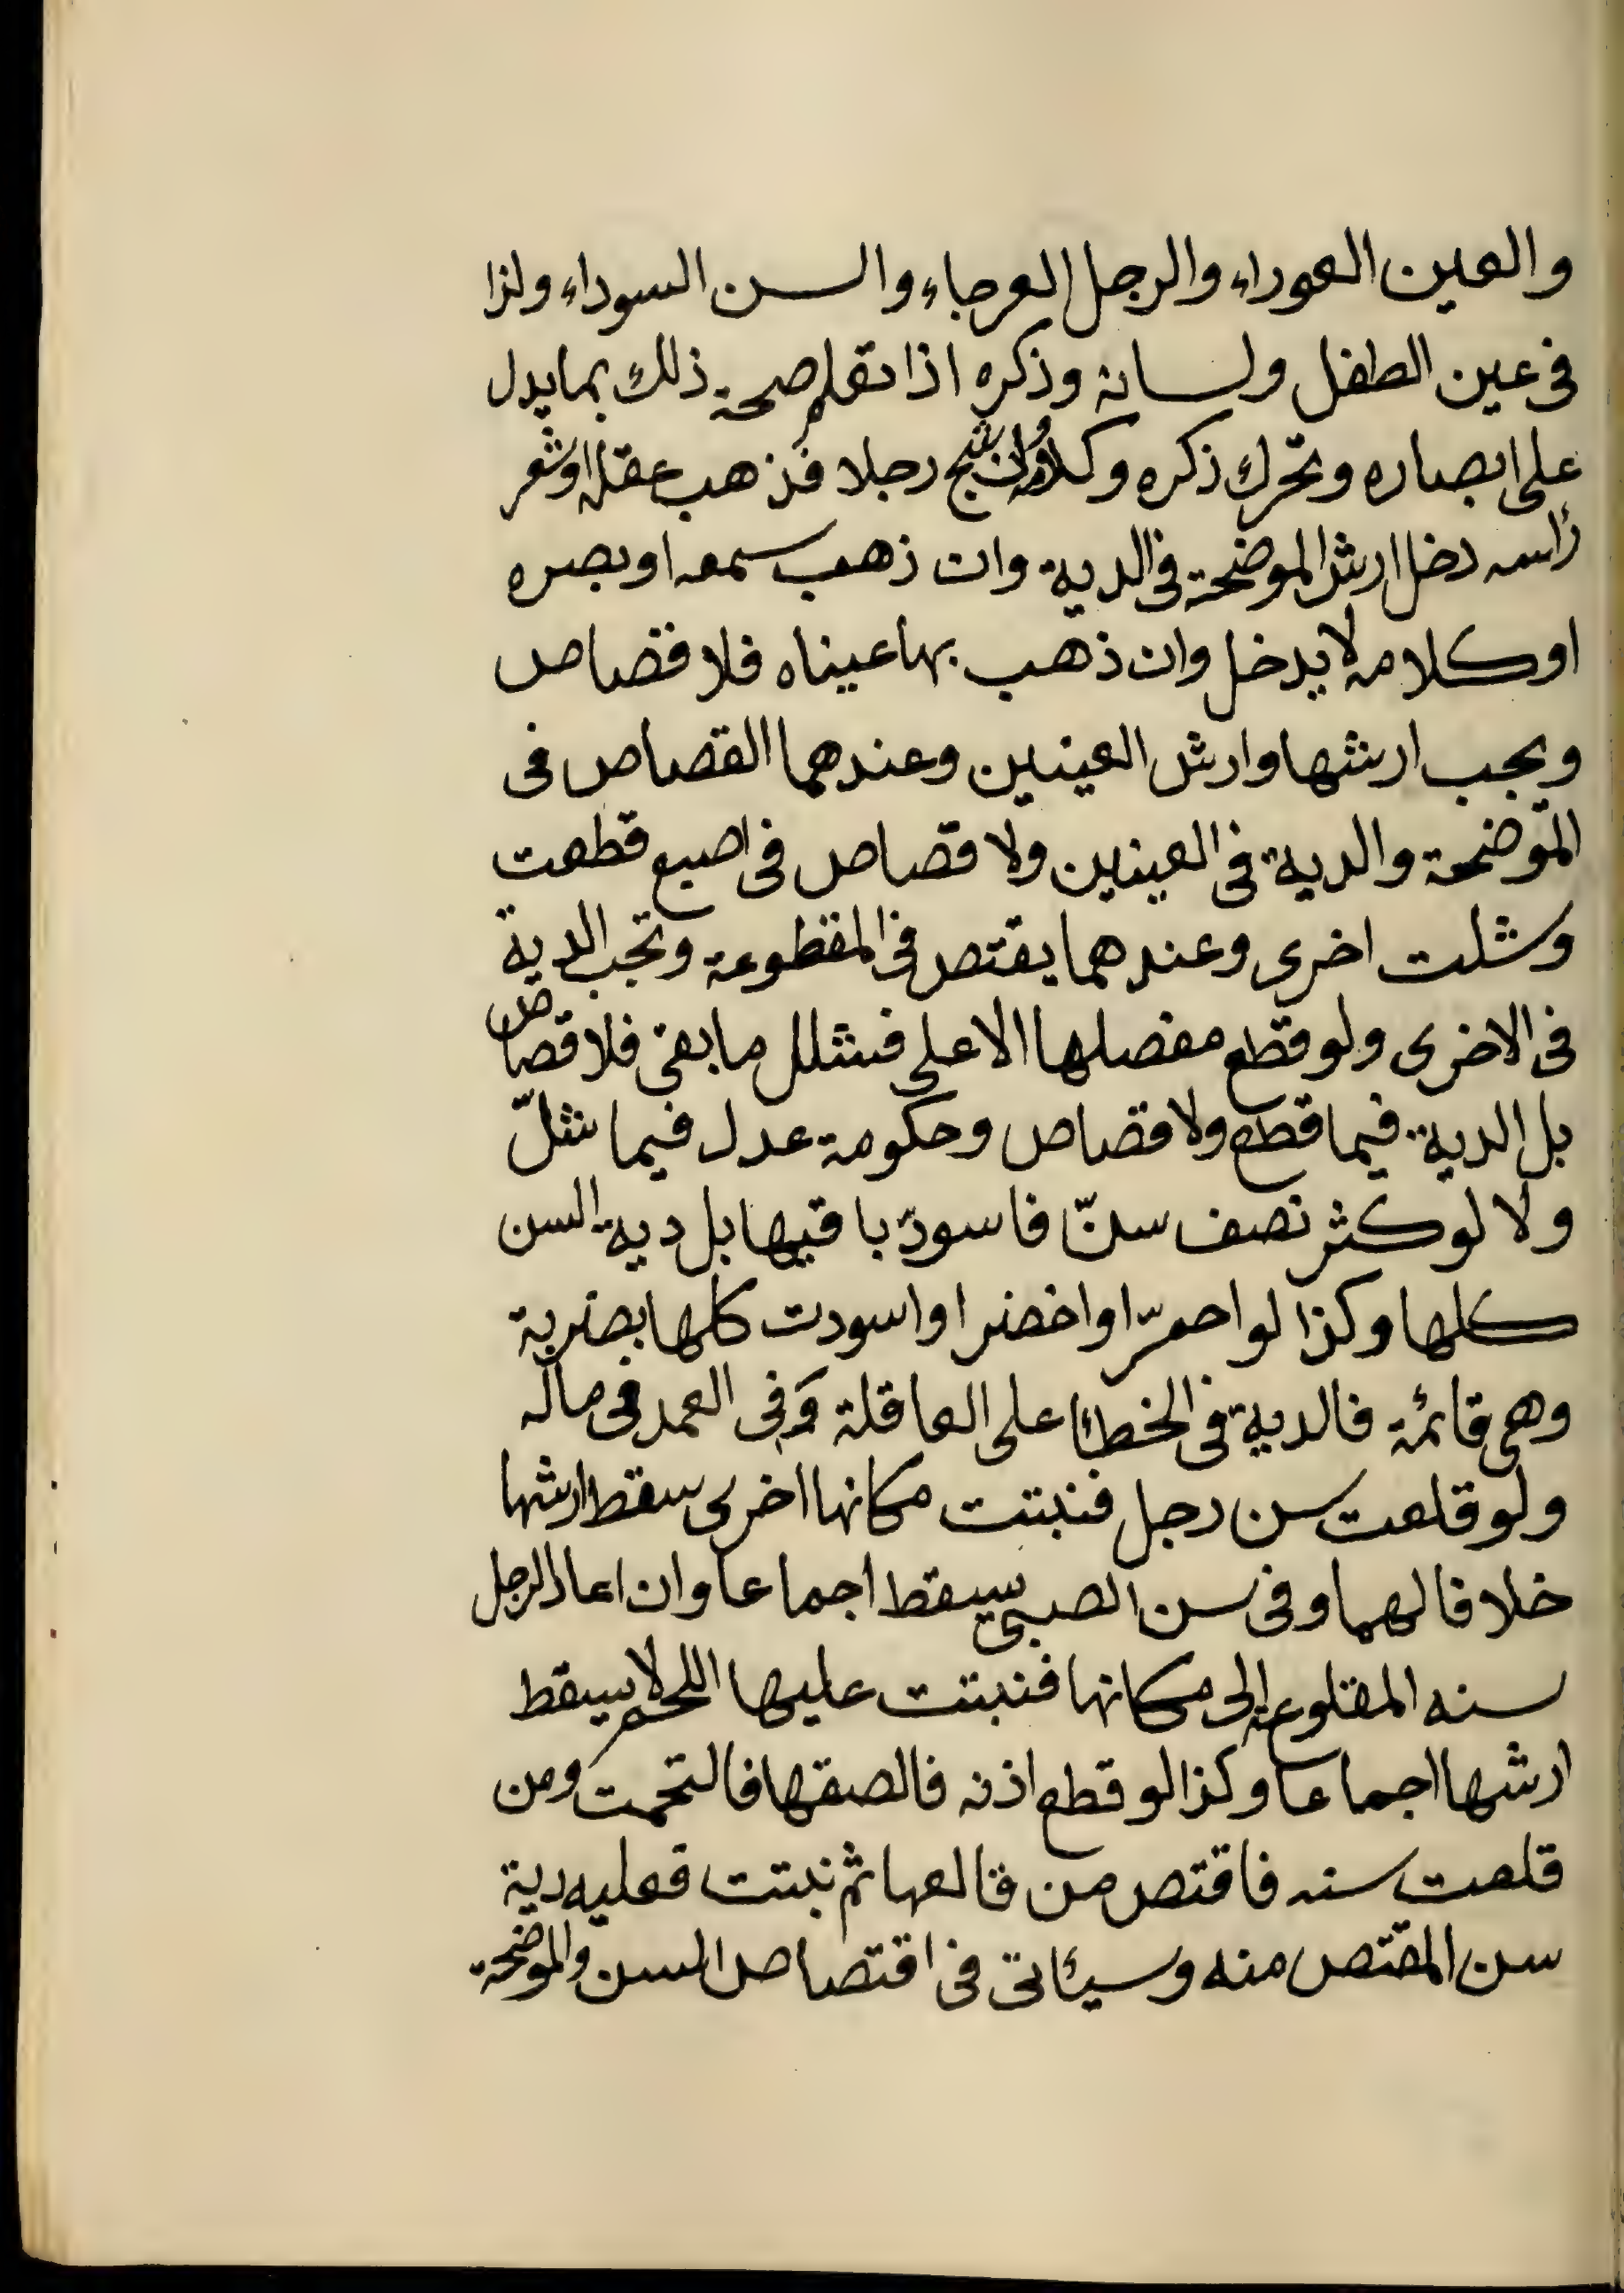 والعين العوراء والرجل العرجاء والسن السوداء ولذا
فى عين الطفل ولسانه وذكره اذا تعلم صحة ذلك بما يدل
على ابصاره وتحرك ذكره وكلامه وان شج رجلا فذهب عقله او شعر
رأسه دخل ارش الموضحة فى الدية وان ذهب سمعه او بصره
او كلامه لا يدخل وان ذهب بها عيناه فلا قصاص
ويجب ارشها وارش العينين وعندهما القصاص فى
الموضحة والدية فى العينين ولا قصاص فى اصبع قطعت
وشلت اخرى وعندهما يقتص فى المقطوعة وتجب الدية
فى الاخرى ولو قطع مفصلها الاعلى فشلل ما بقى فلا قصاص
بل الدية فيما قطع ولا قصاص وحكومة عدل فيما شلّ
ولا لو كثر نصف سنّ فاسودّ باقيها بل دية السن
كلها وكذا لو احمرّ او اخضر او اسودت كلها بضربة
وهى قائمة فالدية فى الخطأ على العاقلة وفى العمد فى ماله
ولو قلعت سن رجل فنبتت مكانها اخرى سقط ارشها
خلافا لهما وفى سن الصبى يسقط اجماعا وان اعاد الرجل
سنه المقلوعة الى مكانها فنبتت عليها اللحم لا يسقط
ارشها اجماعا وكذا لو قطع اذنه فالصقها فالتحمت ومن
قلعت سنه فاقتص من قالعها ثم نبتت فعليه دية
سن المقتص منه وسيأتى فى اقتصاص السن والموضحة